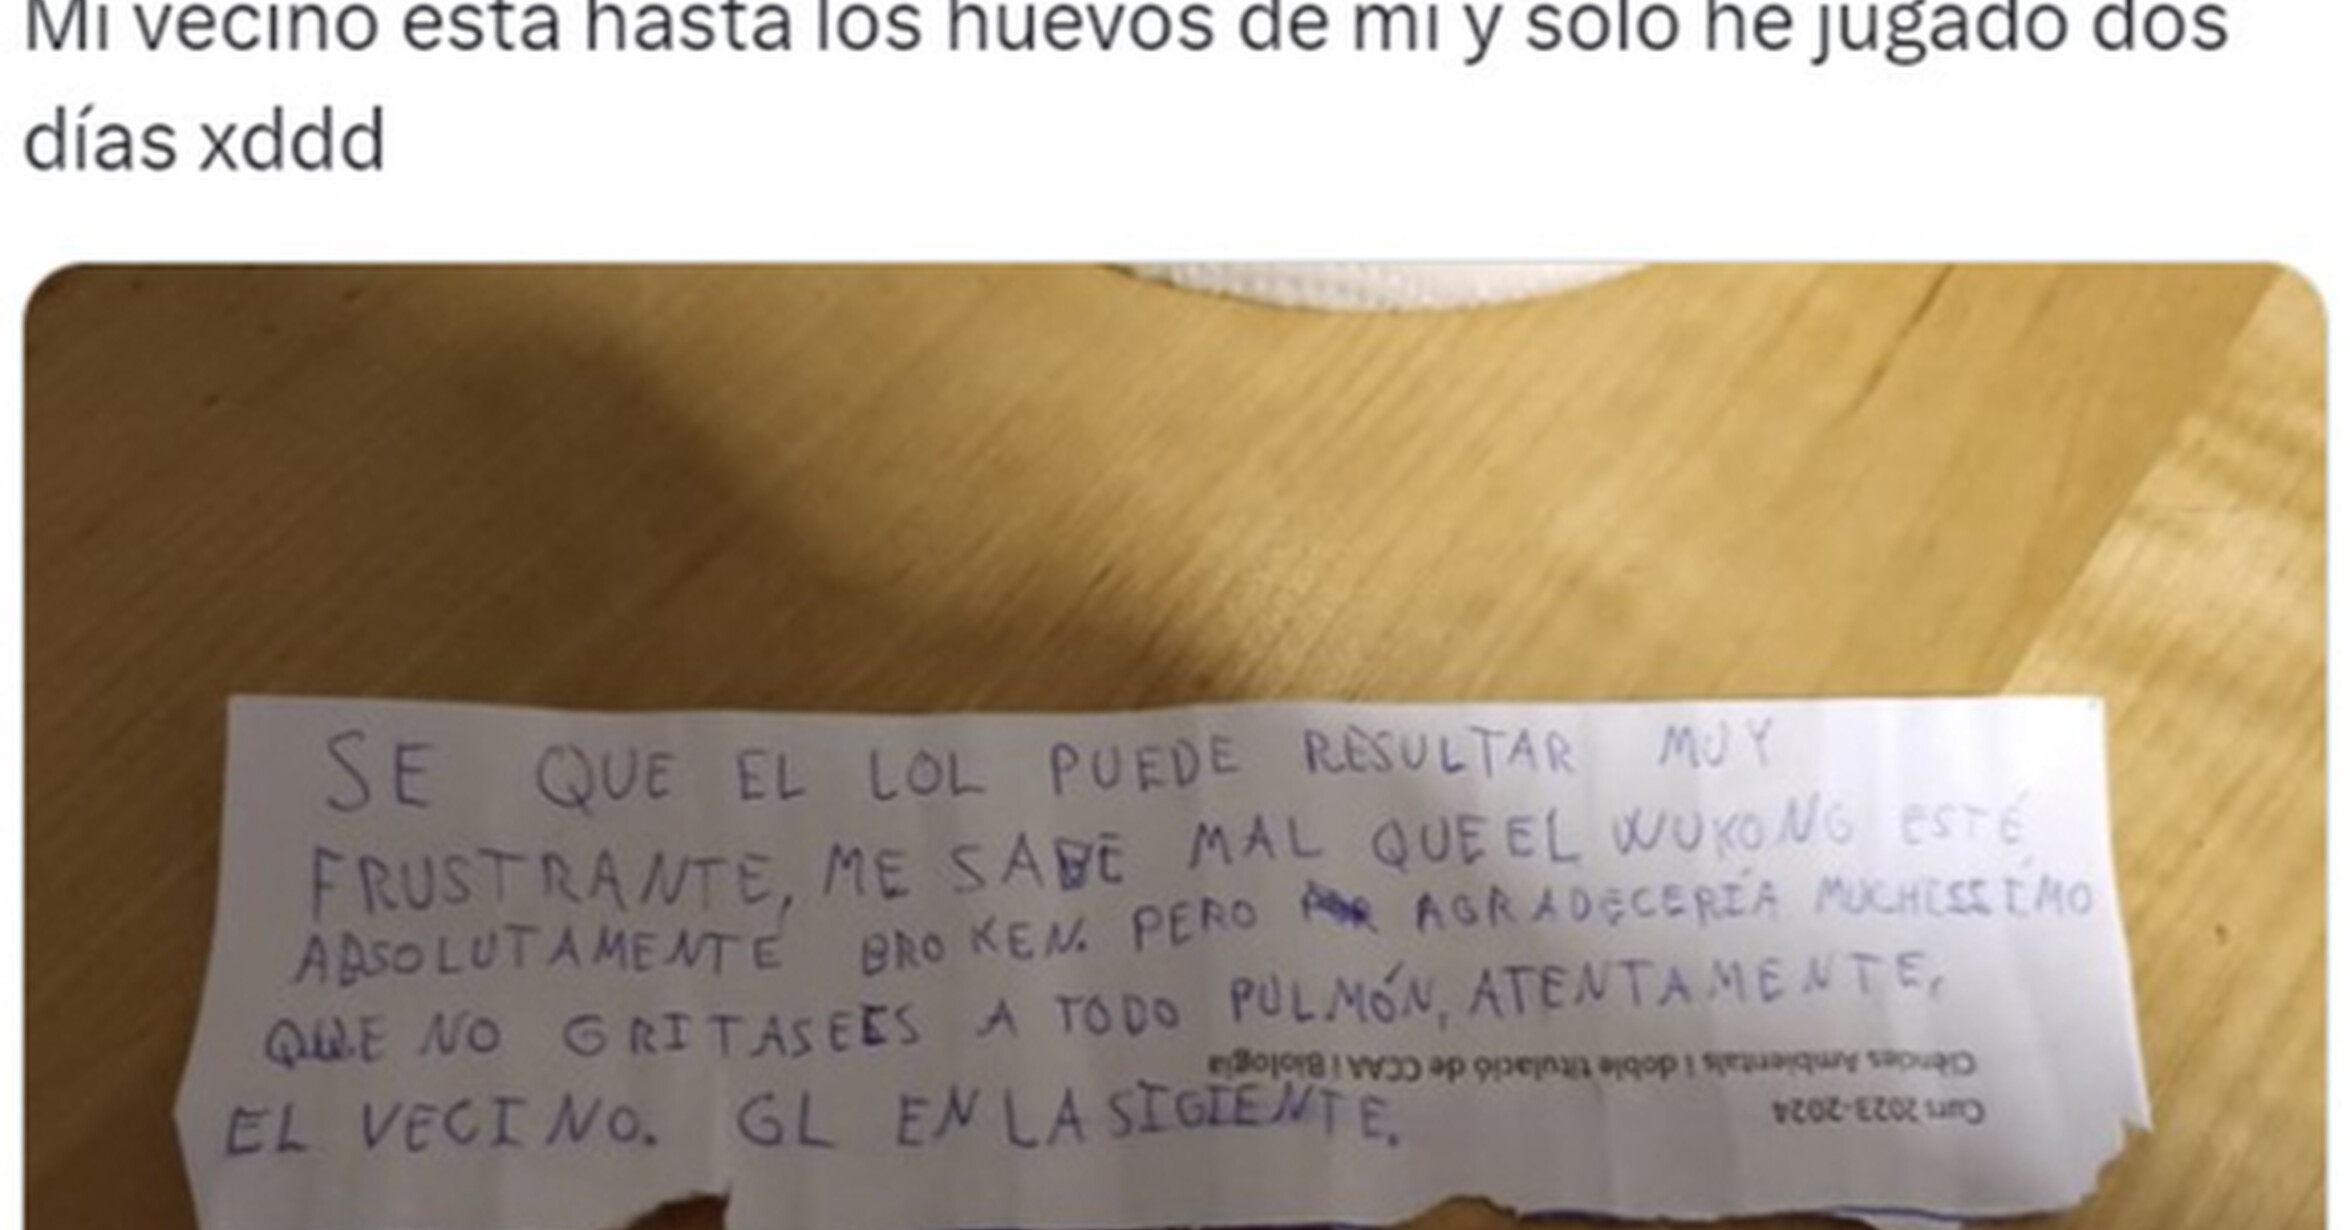 Mi vecino está hasta los huevos de mí y solo he jugado dos
días xddd
SE QUE EL LOL PUEDE RESULTAR MUY
FRUSTRANTE, ME SABE MAL QUE EL WUKONG ESTÉ
ABSOLUTAMENTE BROKEN. PERO AGRADECERÍA MUCHISSIMO
QUE NO GRITASEES A TODO PULMÓN, ATENTAMENTE,
EL VECINO. GL EN LA SIGIENTE.
Curs 2023-2024
Ciències Ambientals i doble titulació de CCAA i Biologia